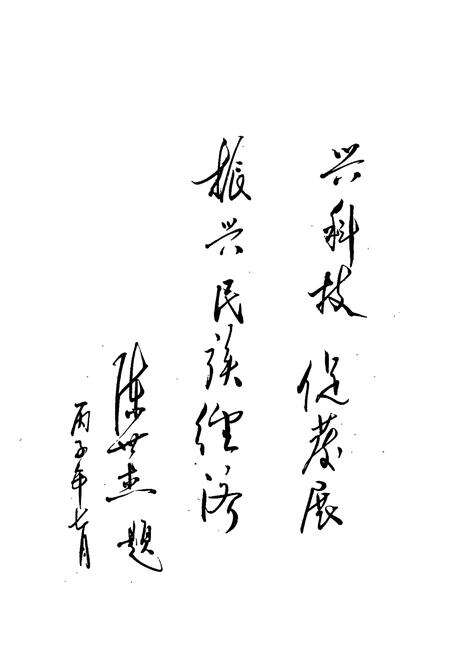 兴科技 促发展
振兴民族经济
陈世杰 题
丙子年七月